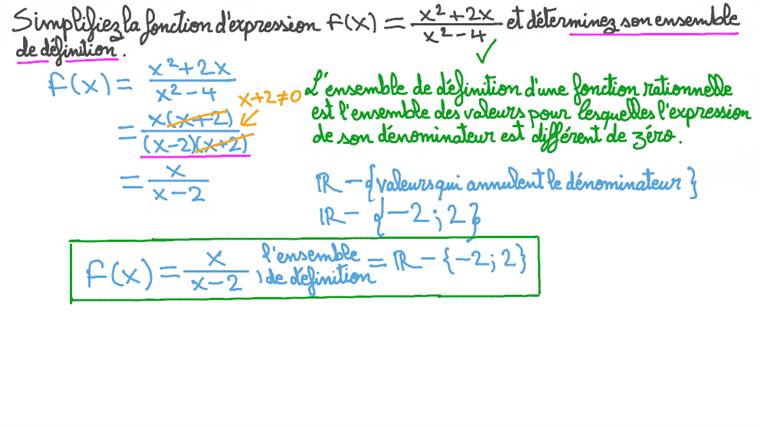 Simplifiez la fonction d'expression f(x) = x²+2x / x²−4 et déterminez son ensemble
de définition.
f(x) = x²+2x / x²−4
x+2≠0
= x(x+2) / (x−2)(x+2)
= x / x−2
L'ensemble de définition d'une fonction rationnelle
est l'ensemble des valeurs pour lesquelles l'expression
de son dénominateur est différent de zéro.
ℝ − {valeurs qui annulent le dénominateur}
ℝ − {−2 ; 2}
f(x) = x / x−2 , l'ensemble de définition = ℝ − {−2 ; 2}